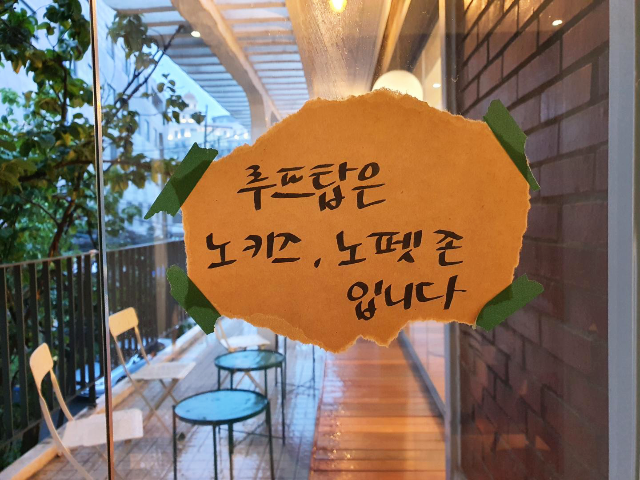 루프탑은
노키즈, 노펫존
입니다